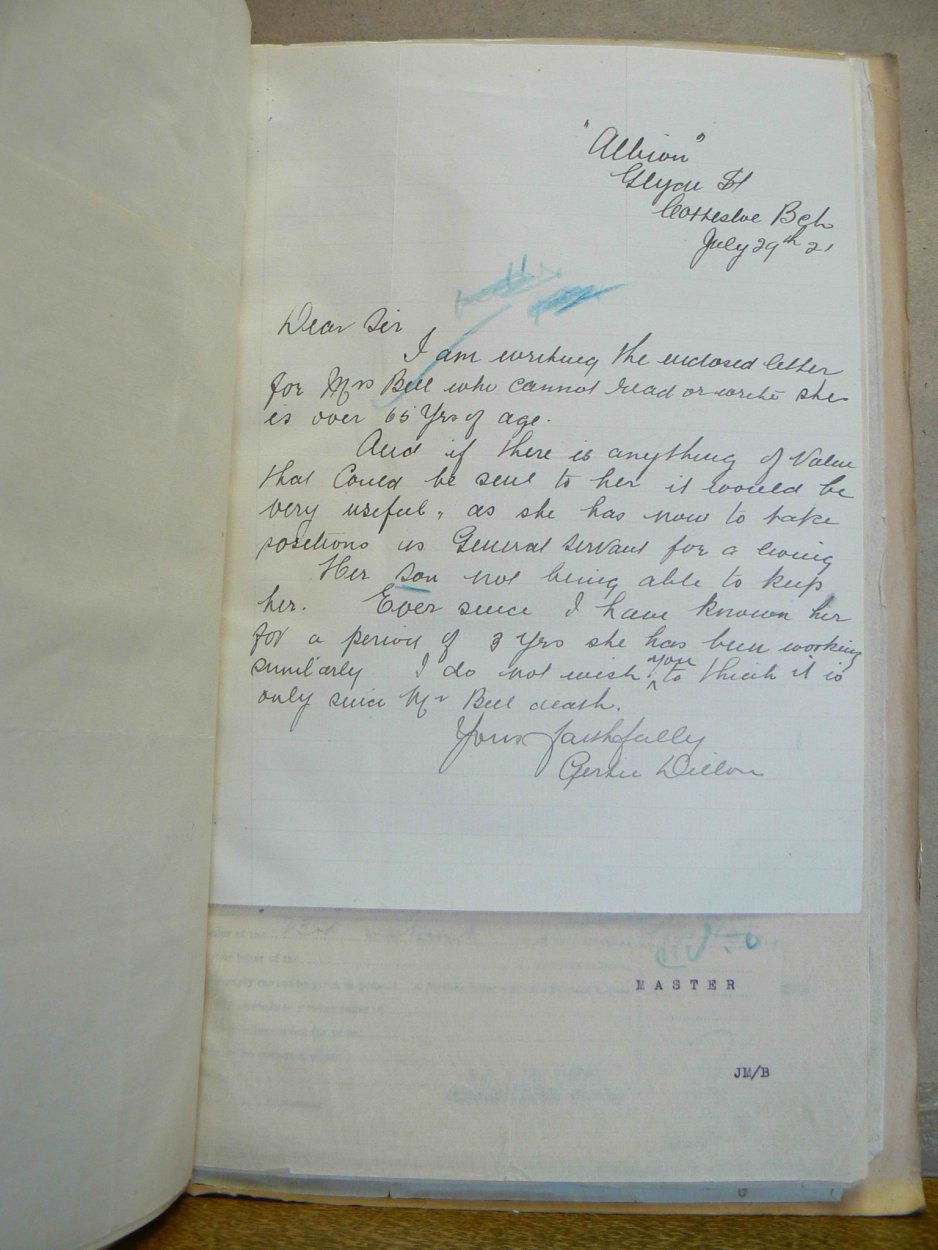 "Albion"
Glyde St
Cottesloe Bch
July 29th 21
Dear Sir
I am writing the enclosed letter
for Mrs Bell who cannot read or write she
is over 65 Yrs of age.
And if there is anything of Value
that Could be sent to her it would be
very useful, as she has now to take
positions as General Servant for a living
Her son not being able to keep
her. Ever since I have known her
for a period of 3 yrs she has been working
similarly I do not wish you to think it is
only since Mr Bell death.
Yours faithfully
Gertie Dillon
MASTER
JM/B